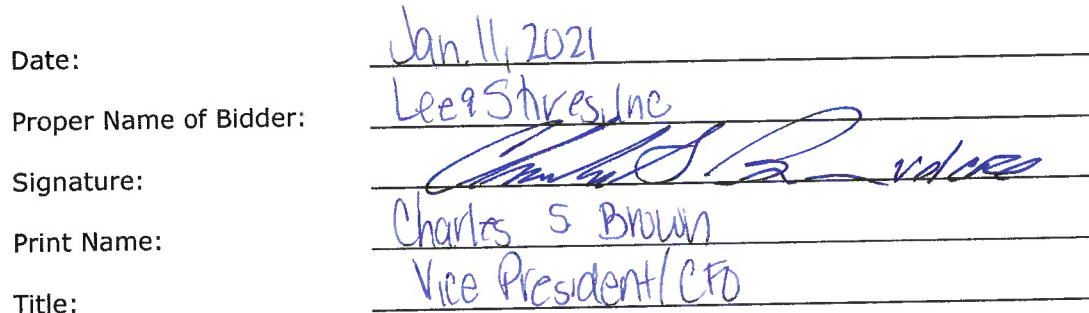 Date: Jan. 11, 2021
Proper Name of Bidder: Lee & Stires, Inc
Signature:
Print Name: Charles S Brown
Title: Vice President/CFO